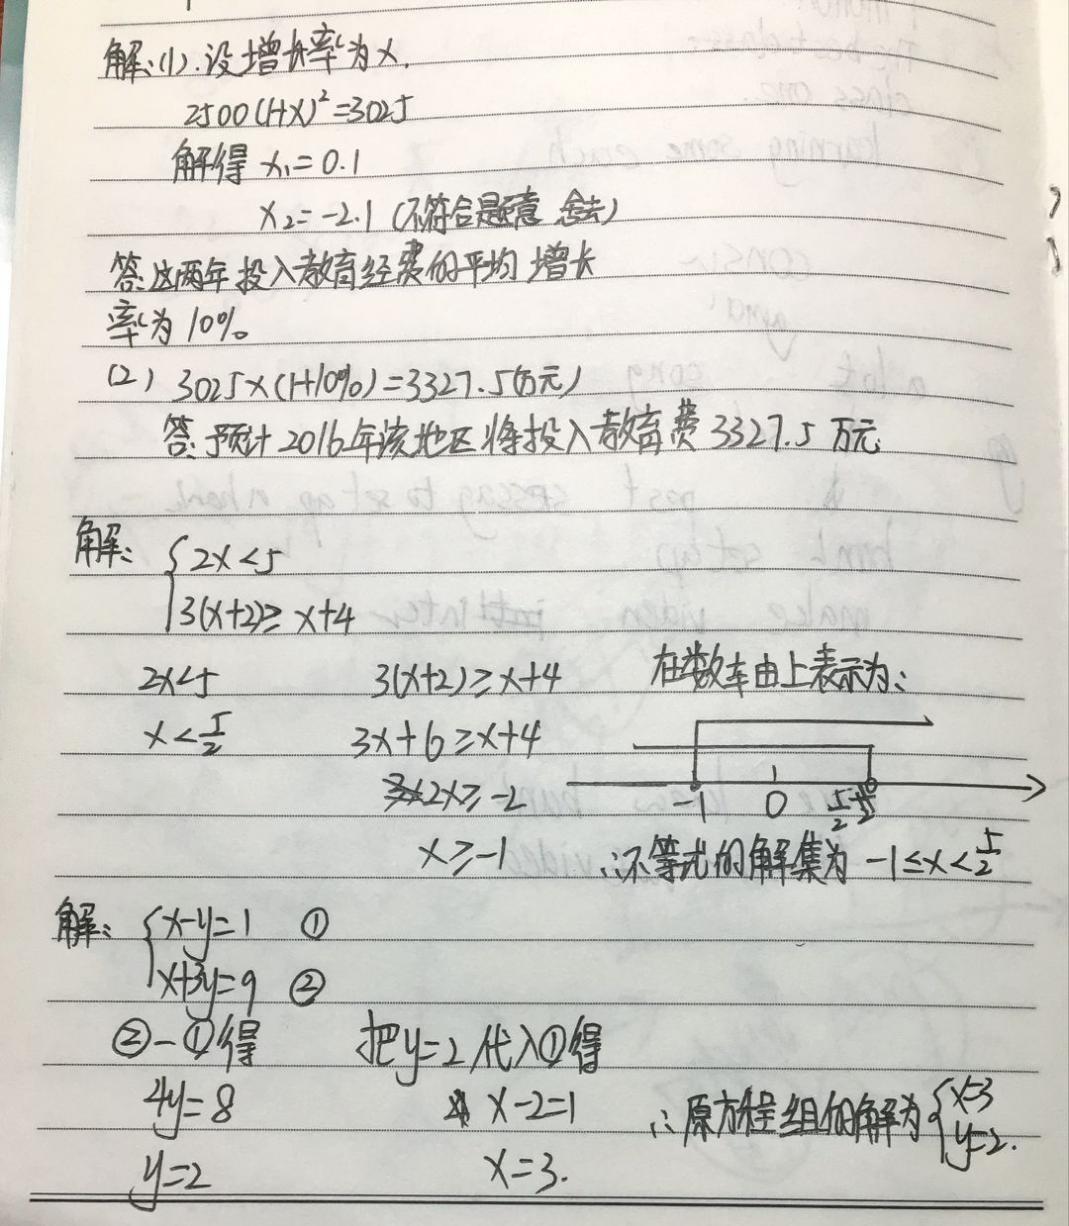 解:(1).设增长率为x.
2500(1+x)²=3025
解得 x₁=0.1
x₂=-2.1 (不符合题意 舍去)
答:这两年投入教育经费的平均增长
率为10%。
(2) 3025×(1+10%)=3327.5(万元)
答:预计2016年该地区将投入教育费3327.5万元
解: { 2x<5
3(x+2)≥x+4
2x<5 3(x+2)≥x+4 在数轴上表示为:
x<5/2 3x+6≥x+4
2x≥-2 -1 0 5/2
x≥-1 ∴不等式的解集为 -1≤x<5/2
解: { x-y=1 ①
x+3y=9 ②
②-①得 把y=2代入①得
4y=8 x-2=1 ∴原方程组的解为 { x=3
y=2 x=3. y=2.